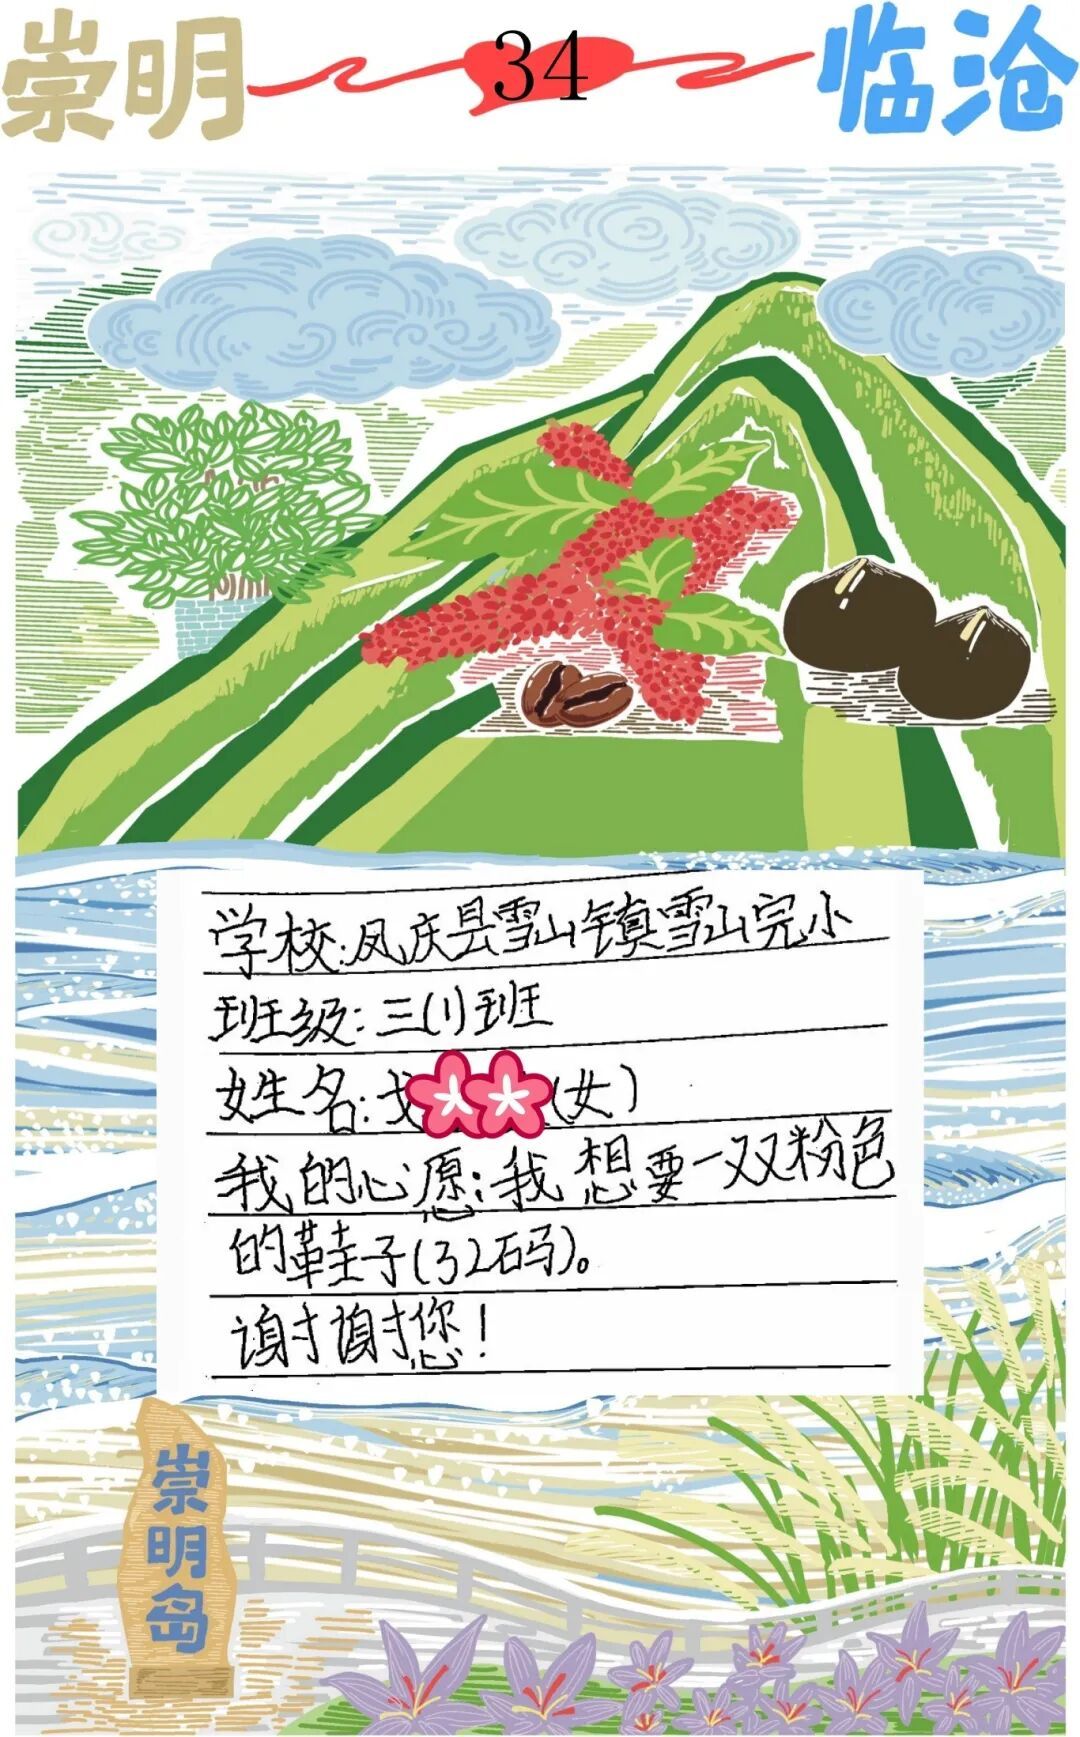 崇明 34 临沧
学校:凤庆县雪山镇雪山完小
班级:三(1)班
姓名:戈 (女)
我的心愿:我想要一双粉色
的鞋子(32码)。
谢谢您!
崇明岛